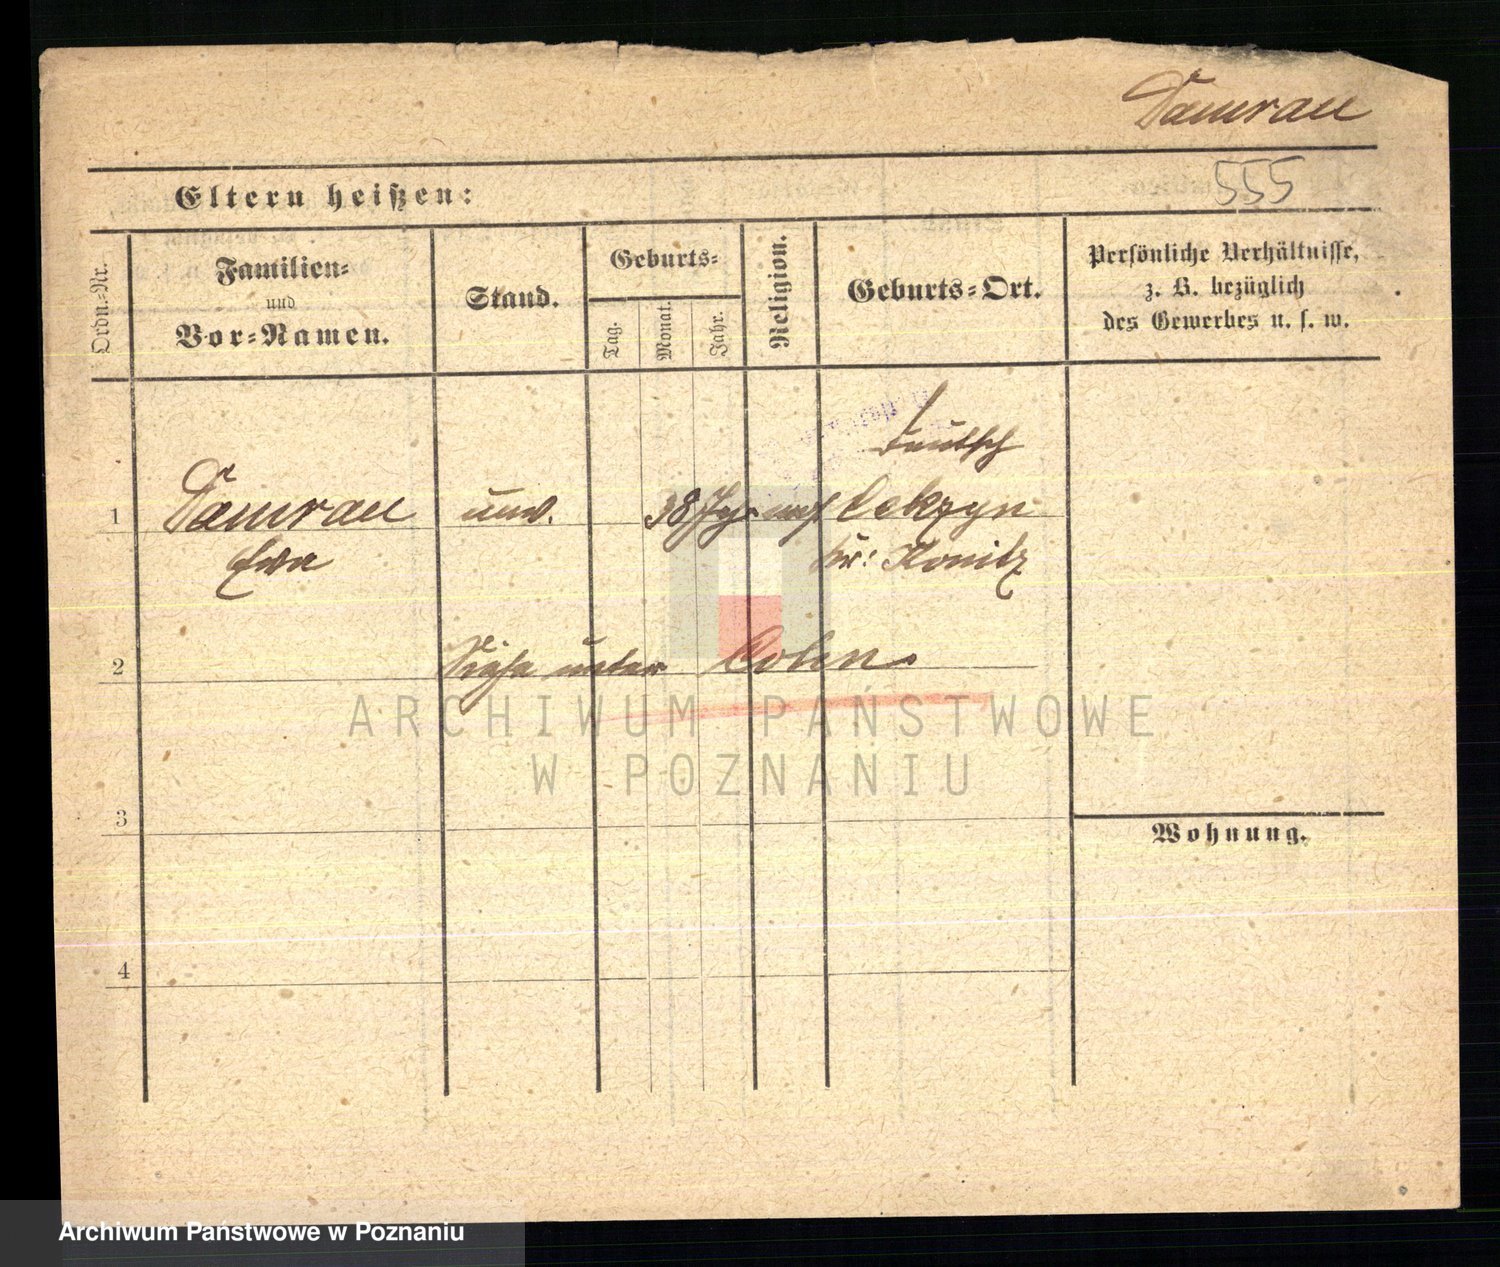 Damrau
555
Eltern heißen:
Ordn.-Nr.
Familien-
und
Vor-Namen.
Stand.
Geburts-
Tag.
Monat.
Jahr.
Religion.
Geburts-Ort.
Persönliche Verhältnisse,
z. B. bezüglich
des Gewerbes u. s. w.
deutsch
1 Damrau unv. 38 Cekzyn
Eva Kr: Konitz
2 Siehe unter Colen
3
Wohnung.
4
ARCHIWUM PAŃSTWOWE
W POZNANIU
Archiwum Państwowe w Poznaniu